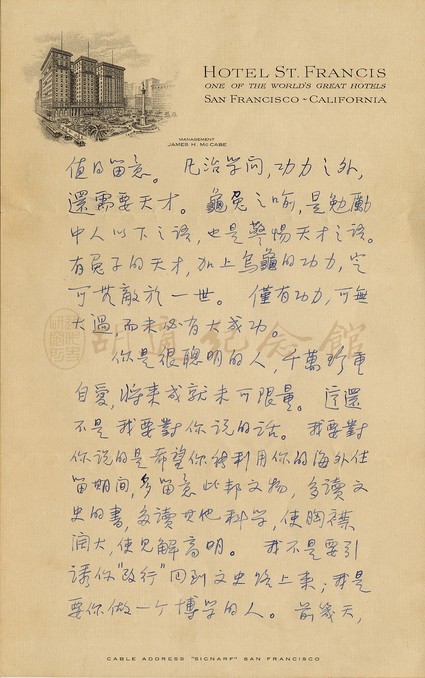 HOTEL ST. FRANCIS
ONE OF THE WORLD'S GREAT HOTELS
SAN FRANCISCO ~ CALIFORNIA
MANAGEMENT
JAMES H. McCABE
值得留意。凡治学问,功力之外,
還需要天才。龜兔之喻,是勉勵
中人以下之語,也是警惕天才之語。
有兔子的天才,加上烏龜的功力,定
可无敵於一世。僅有功力,可無
大過,而未必有大成功。
你是很聰明的人,千萬珍重
自愛,將来成就未可限量。這還
不是我要對你说的话。我要對
你说的是希望你能利用你的海外住
留期间,多留意此邦文物,多讀文
史的書,多讀其他科学,使胸襟
阔大,使见解高明。我不是要引
誘你“改行”回到文史路上来;我是
要你做一个博学的人。前幾天,
胡適紀念館
CABLE ADDRESS "SIGNARF" SAN FRANCISCO